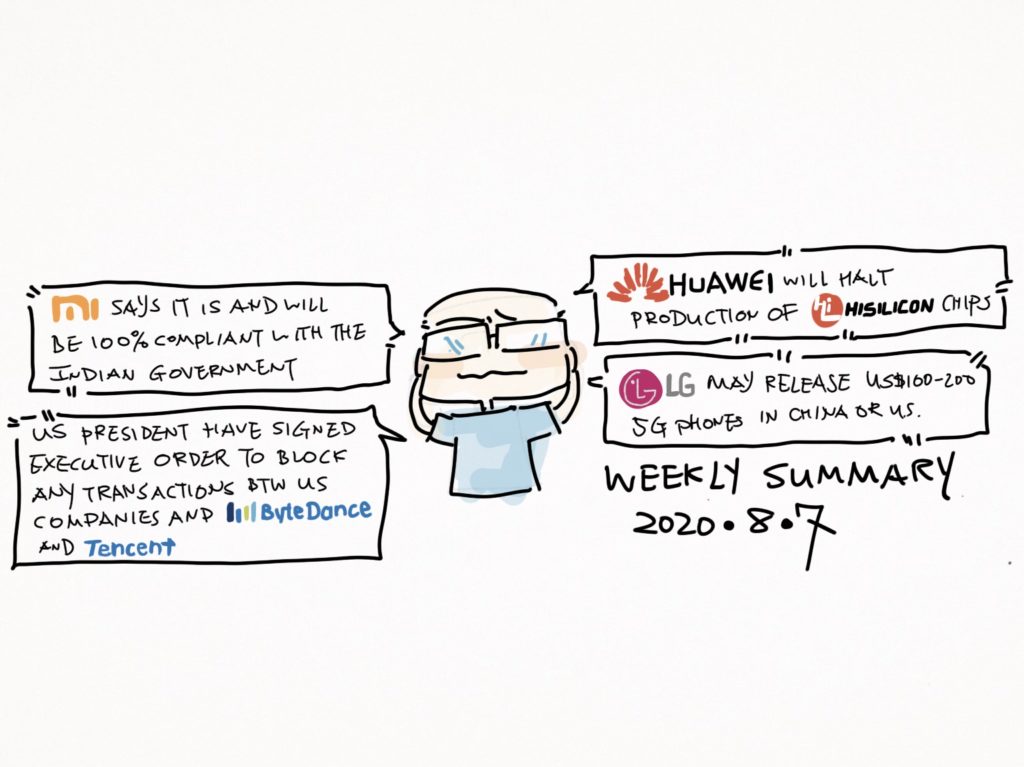 mi SAYS IT IS AND WILL
BE 100% COMPLIANT WITH THE
INDIAN GOVERNMENT
US PRESIDENT HAVE SIGNED
EXECUTIVE ORDER TO BLOCK
ANY TRANSACTIONS BTW US
COMPANIES AND ByteDance
AND Tencent
HUAWEI WILL HALT
PRODUCTION OF Hi HISILICON CHIPS
LG LG MAY RELEASE US$100-200
5G PHONES IN CHINA OR US.
WEEKLY SUMMARY
2020.8.7